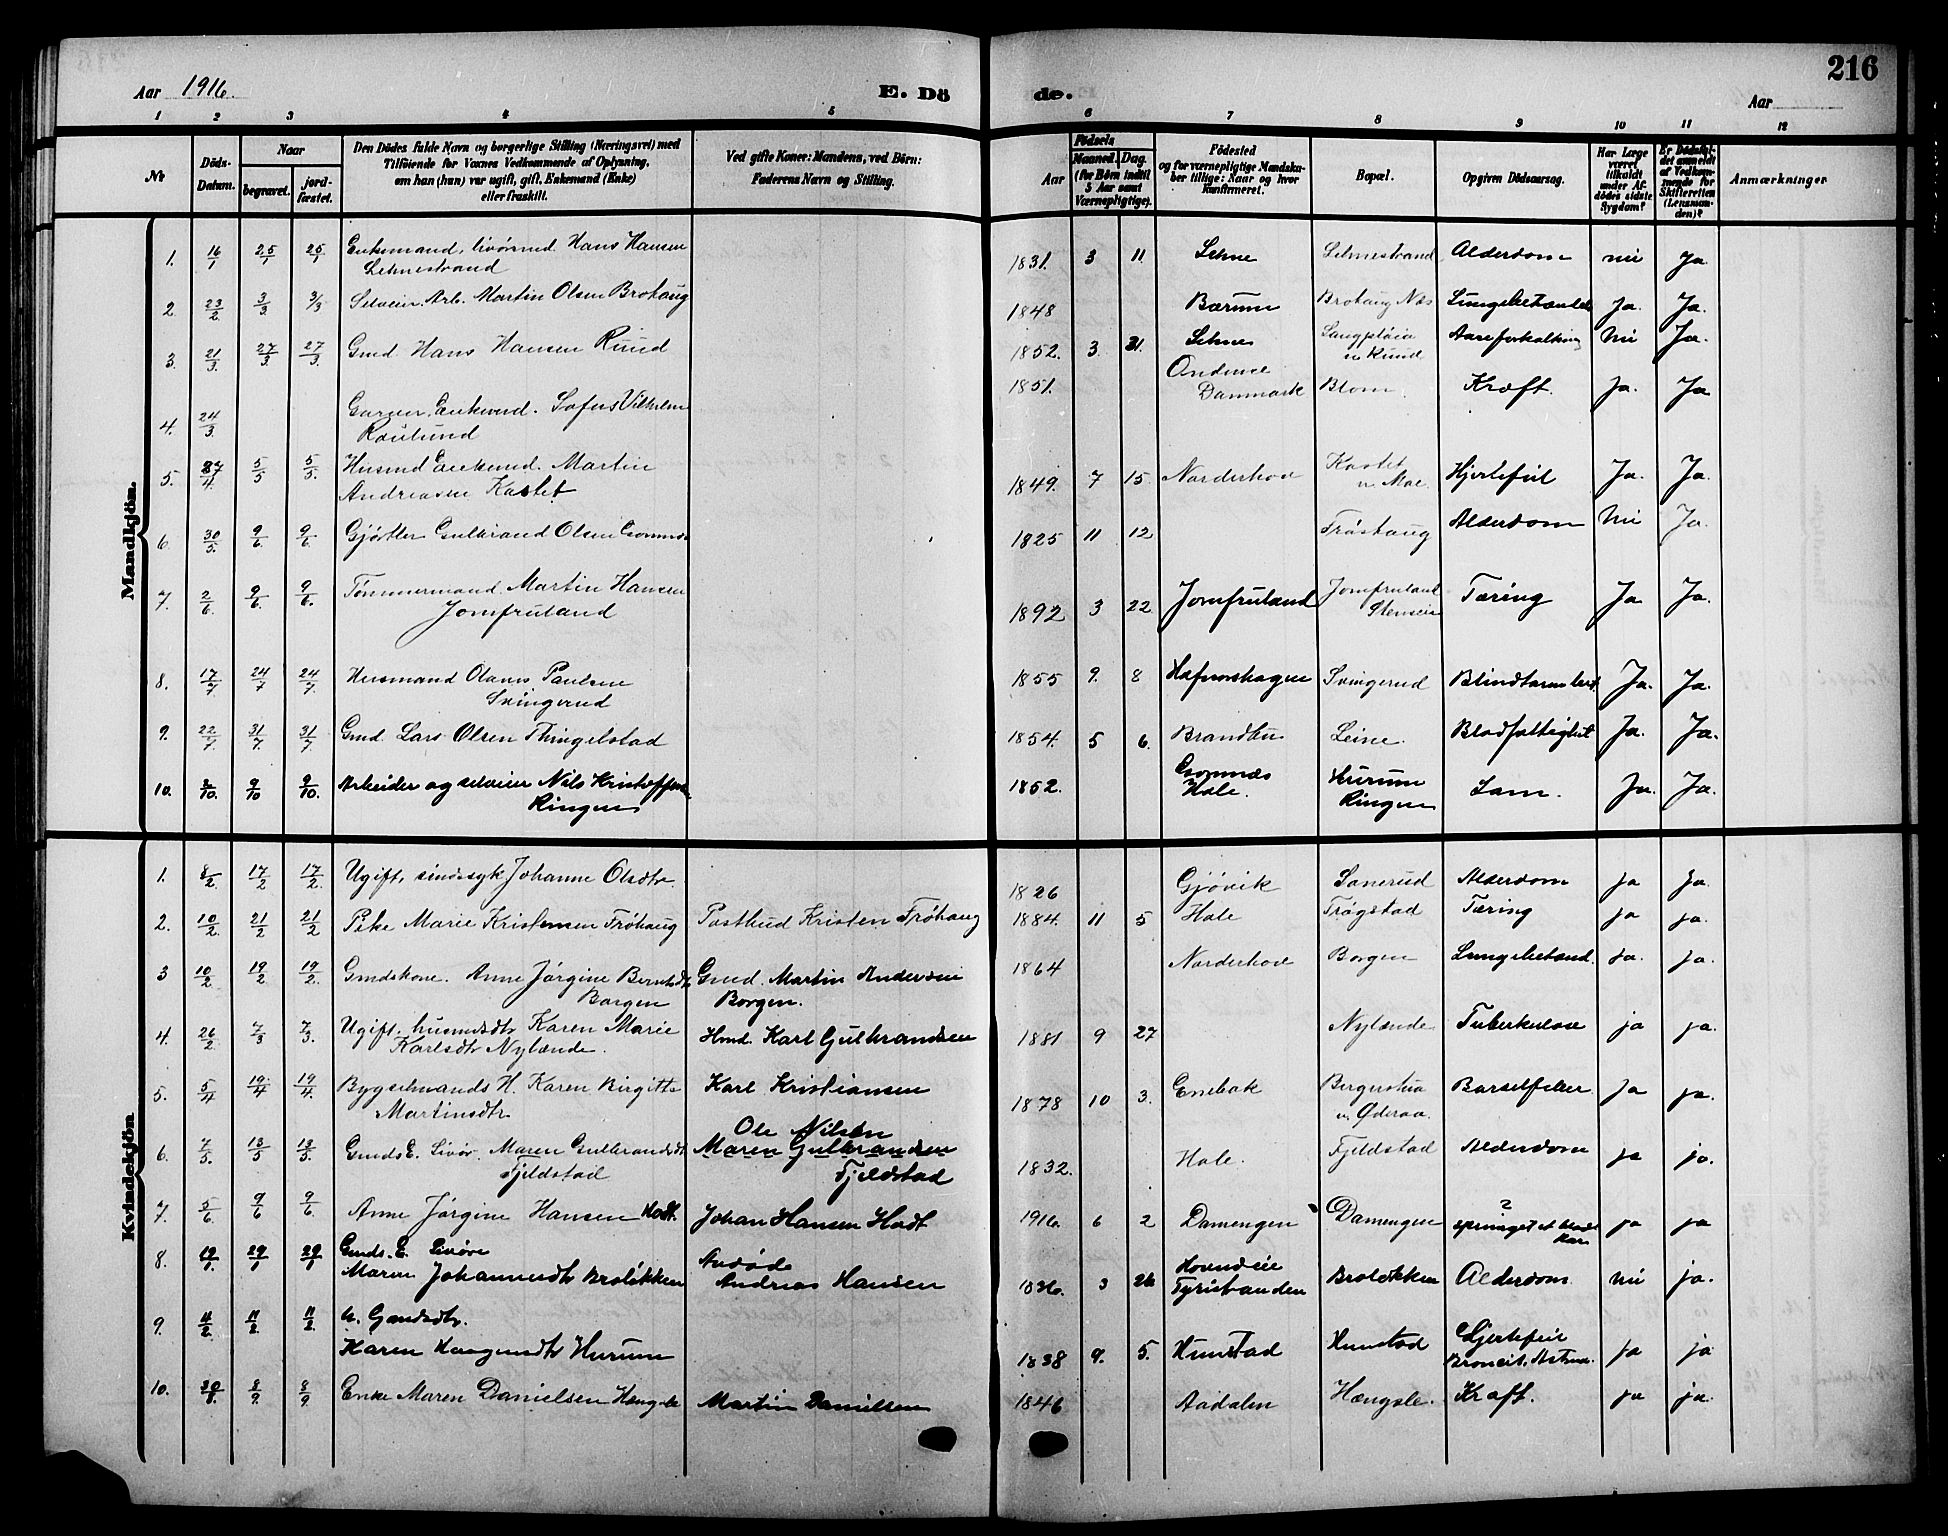 216
Aar 1916.
E. Dö de.
Aar
1 2 3 4 5 6 7 8 9 10 11 12
No
Döds-Datum.
Naar
begravet.
jord-fæstet.
Den Dödes fulde Navn og borgerlige Stilling (Næringsvei) med
Tilföiende for Voxnes Vedkommende af Oplysning,
om han (hun) var ugift, gift, Enkemand (Enke)
eller fraskilt.
Ved gifte Koner: Mandens, ved Börn:
Faderens Navn og Stilling.
Aar
Födsels
Maaned. Dag.
(for Börn indtil
5 Aar samt
Værnepligtige).
Födested
og for værnepligtige Mandska-
ber tillige: Naar og hvor
konfirmeret.
Bopæl.
Opgiven Dödsaarsag.
Har Læge
været
tilkaldt
under Af-
dödes sidste
Sygdom?
Er Dödsfal-
det anmeldt
af Vedkom-
mende for
Skifteretten
(Lensman-
den)?
Anmærkninger
Mandkjön.
1. 16/1 25/1 25/1 Enkemand, livörsmd. Hans Hansen 1831. 3 11. Lehne Lehnestrand Alderdom nei ja
Lehnestrand
2. 23/2 3/3 3/3 Selveier. Arb. Martin Olsen Brohaug 1848 Bærum Brohaug Næs Ja. Ja.
3. 21/3 27/3 27/3. Gmd. Hans Hansen Ruud 1852. 3 21. Lehne Aareforkalkning Nei Ja.
4. 24/3 1851. Danmark Blom. Kræft. Ja. Ja
Garver. Enkemd. Sofus Vilhelm
Raulund
5. 27/4 5/5 5/5. Husmd Enkemd. Martin 1849. 7 15. Norderhov Kastet Hjertefeil Ja. Ja.
Andreasen Kastet v. Moe
6. 30/5 9/6 9/6 Gjørtler Gulbrand Olsen Gomnæs 1825 11 12 Frøshaug Alderdom Nei Ja.
7. 2/6 9/6 9/6. Tømmermand Martin Hansen 1892 3 22 Jomfruland Jomfruland Tæring Ja Ja.
Jomfruland
8. 17/7 24/7 24/7. Husmand Olaves Paulsen 1855 9. 8 Hafnorshagen Svingerud Blindtarmbet. Ja. Ja.
Svingerud
9. 22/7. 31/7. 31/7 Gmd. Lars Olsen Thingelstad 1854. 5 6. Brandbu Leine. Blodfattighet Ja. Ja.
10. 2/10. 9/10 9/10. Arbeider og selveier Nils Kristoffersen 1852. Gomnæs Hurum Lam. Ja. Ja.
Ringen Hole. Ringen
Kvindekjön
1. 8/2 17/2 17/2. Ugift, sindssyk Johanne Olsdtr. 1826 Gjøvik Sonerud Alderdom ja ja.
2. 10/2. 21/2 21/2 Pike Marie Kristensen Frøhaug Postbud Kristen Frøhaug 1884. 11 5 Hole Frøgstad Tæring ja ja.
3 10/2 19/2 19/2. Gmdskone. Anne Jørgine Berntsdtr Gmd. Martin Andersen 1864 Norderhov Borgen Lungebetænd. ja. ja.
Borgen Borgen.
4. 26/2 7/3 7/3. Ugift, husmdsdtr Karen Marie Hmd. Karl Gulbrandsen 1881 9 27 Nylænde Tuberkulose ja ja.
Karlsdtr Nylænde.
5. 5/4 19/4 19/4. Bygselmands H. Karen Birgitte Karl Kristiansen 1878 10 3. Enebak Barselfeber ja ja.
Martinsdtr v. Øderaa.
6. 7/5. 13/5 13/5. Gmds E. Livør. Maren Gulbrandsdtr Ole Nilsen 1832. Hole. Fjeldstad Alderdom ja ja.
Fjeldstad Maren Gulbrandsen
Fjeldstad
7. 5/6 9/6 9/6 Anne Jørgine Hansen Hodt. Johan Hansen Hodt 1916. 6 2 Damengen Damengen ? ja ja
springet et blodkar
8. 19/1. 29/1 29/1 Gmds. E. Livøre Avdøde 1836. 3 26 Hovndeie Broløkken Alderdom. nei ja.
Maren Johannesdtr Broløkken Andreas Hansen Tyristranden
9. 4/2. 11/2 11/2. u. Gmdsdtr.
Karen Haagensdtr Hurum 1838 9. 5. Hunstad Hunstad Hjertefeil ja ja
Broncit. Astma.
10. 30/8. 8/9. 8/9 Enke Maren Danielsen Hængsle Martin Danielsen 1846 Aadalen Hængsle. Kræft. ja ja.